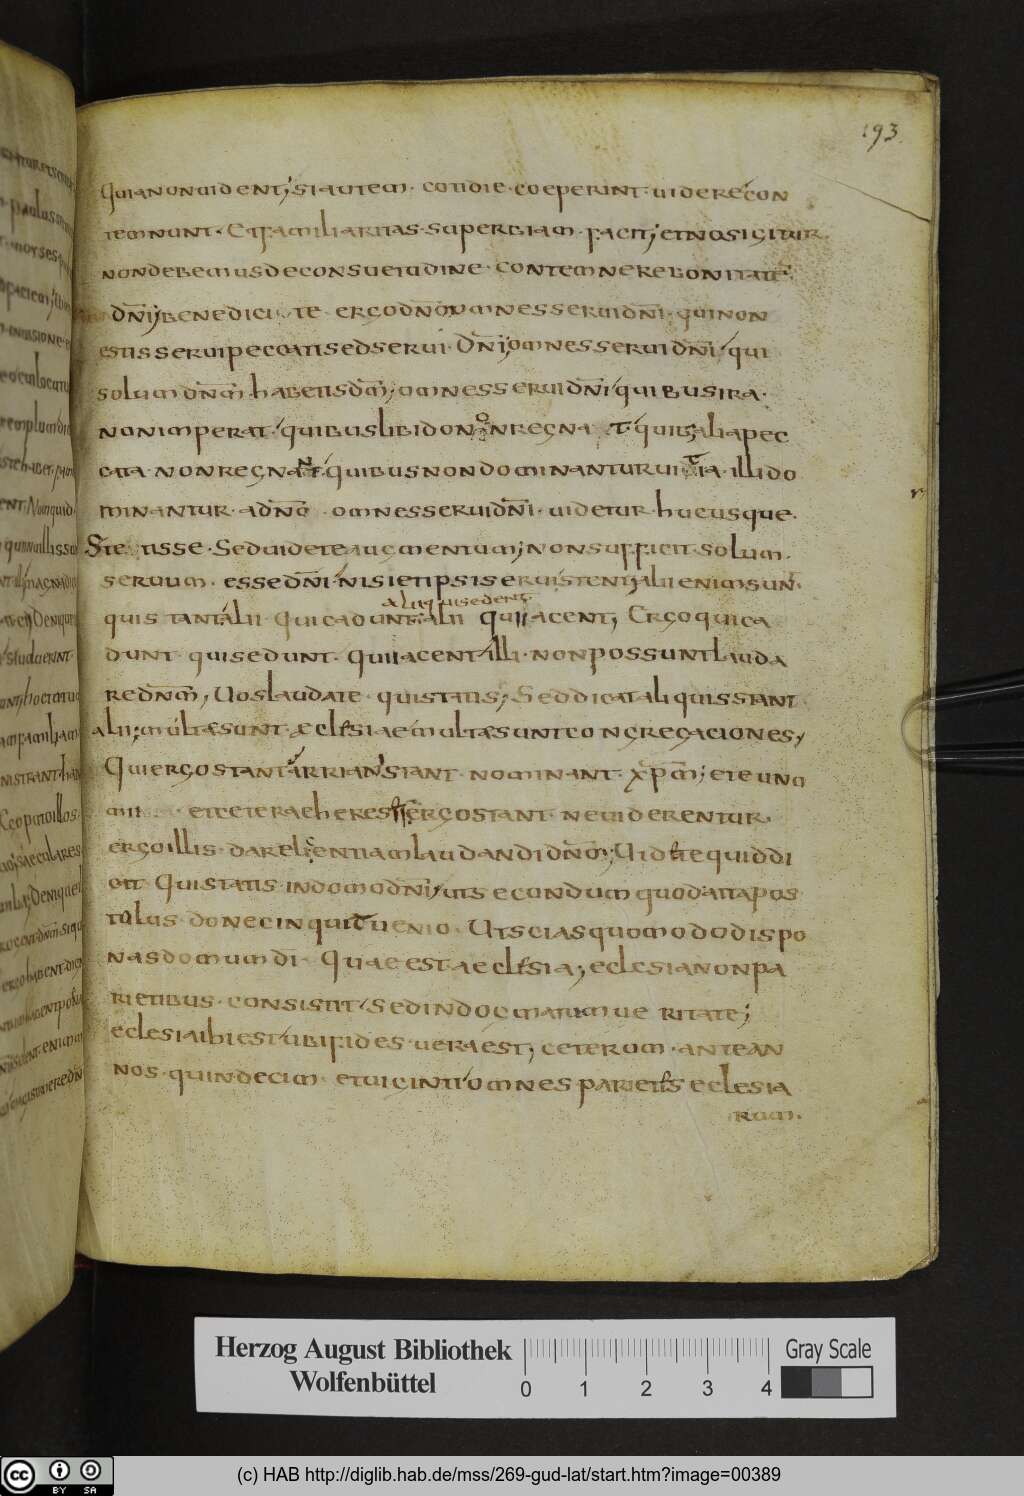 193
quia non uident; si autem · cotidie · coeperint · uidere · con
temnunt · Et familiaritas · superbiam · facit; et nos igitur
non debemus de consuetudine · contemnere bonitatē
dn̄i; benedici te ergo dnō omnes serui dn̄i · qui non
estis serui peccati sed serui · Dn̄i; omnes serui dn̄i · qui
solum dn̄m̄ habetis dm̄; omnes serui dn̄i quibus ira ·
non imperat · quibus libido non regnat · quib; alia pec
cata · non regnant · quibus non dominantur uitia · illi do
minantur · a dnō omnes serui dn̄i · uidetur · hucusque ·
Stetisse · Sed uidete augmentum; non sufficit solum ·
seruum · esse dn̄i nisi et ipsi serui stent; alii enim sun
aliqui sedent
quis stant alii qui cadunt alii qui iacent; Ergo qui ca
dunt qui sedunt · qui iacent illi · non possunt lauda
re dn̄m̄; Uos laudate qui statis; Sed dicat aliquis stant
alii; multæ sunt æclesiae multæ sunt congregaciones;
Qui ergo stant arriani stant nominant xp̄m̄; et euno
mii et ceterae hereses ergo stant ne uiderentur
ergo illis · dare licentiam laudandi dn̄m̄; Uidete quid di
cit Qui statis in domo dn̄i; ut secundum quod at apos
tolus donec inquit uenio Ut scias quomodo dispo
nas domum dī Quae est aeclesia; eclesia non pa
rietibus · consistit sed in dogmatum ueritate;
eclesia ibi est ubi fides uera est; ceterum · ante an
nos · quindecim et uiginti omnes parietes eclesia
rum ·
Herzog August Bibliothek
Wolfenbüttel
0 1 2 3 4
Gray Scale
cc BY SA
(c) HAB http://diglib.hab.de/mss/269-gud-lat/start.htm?image=00389